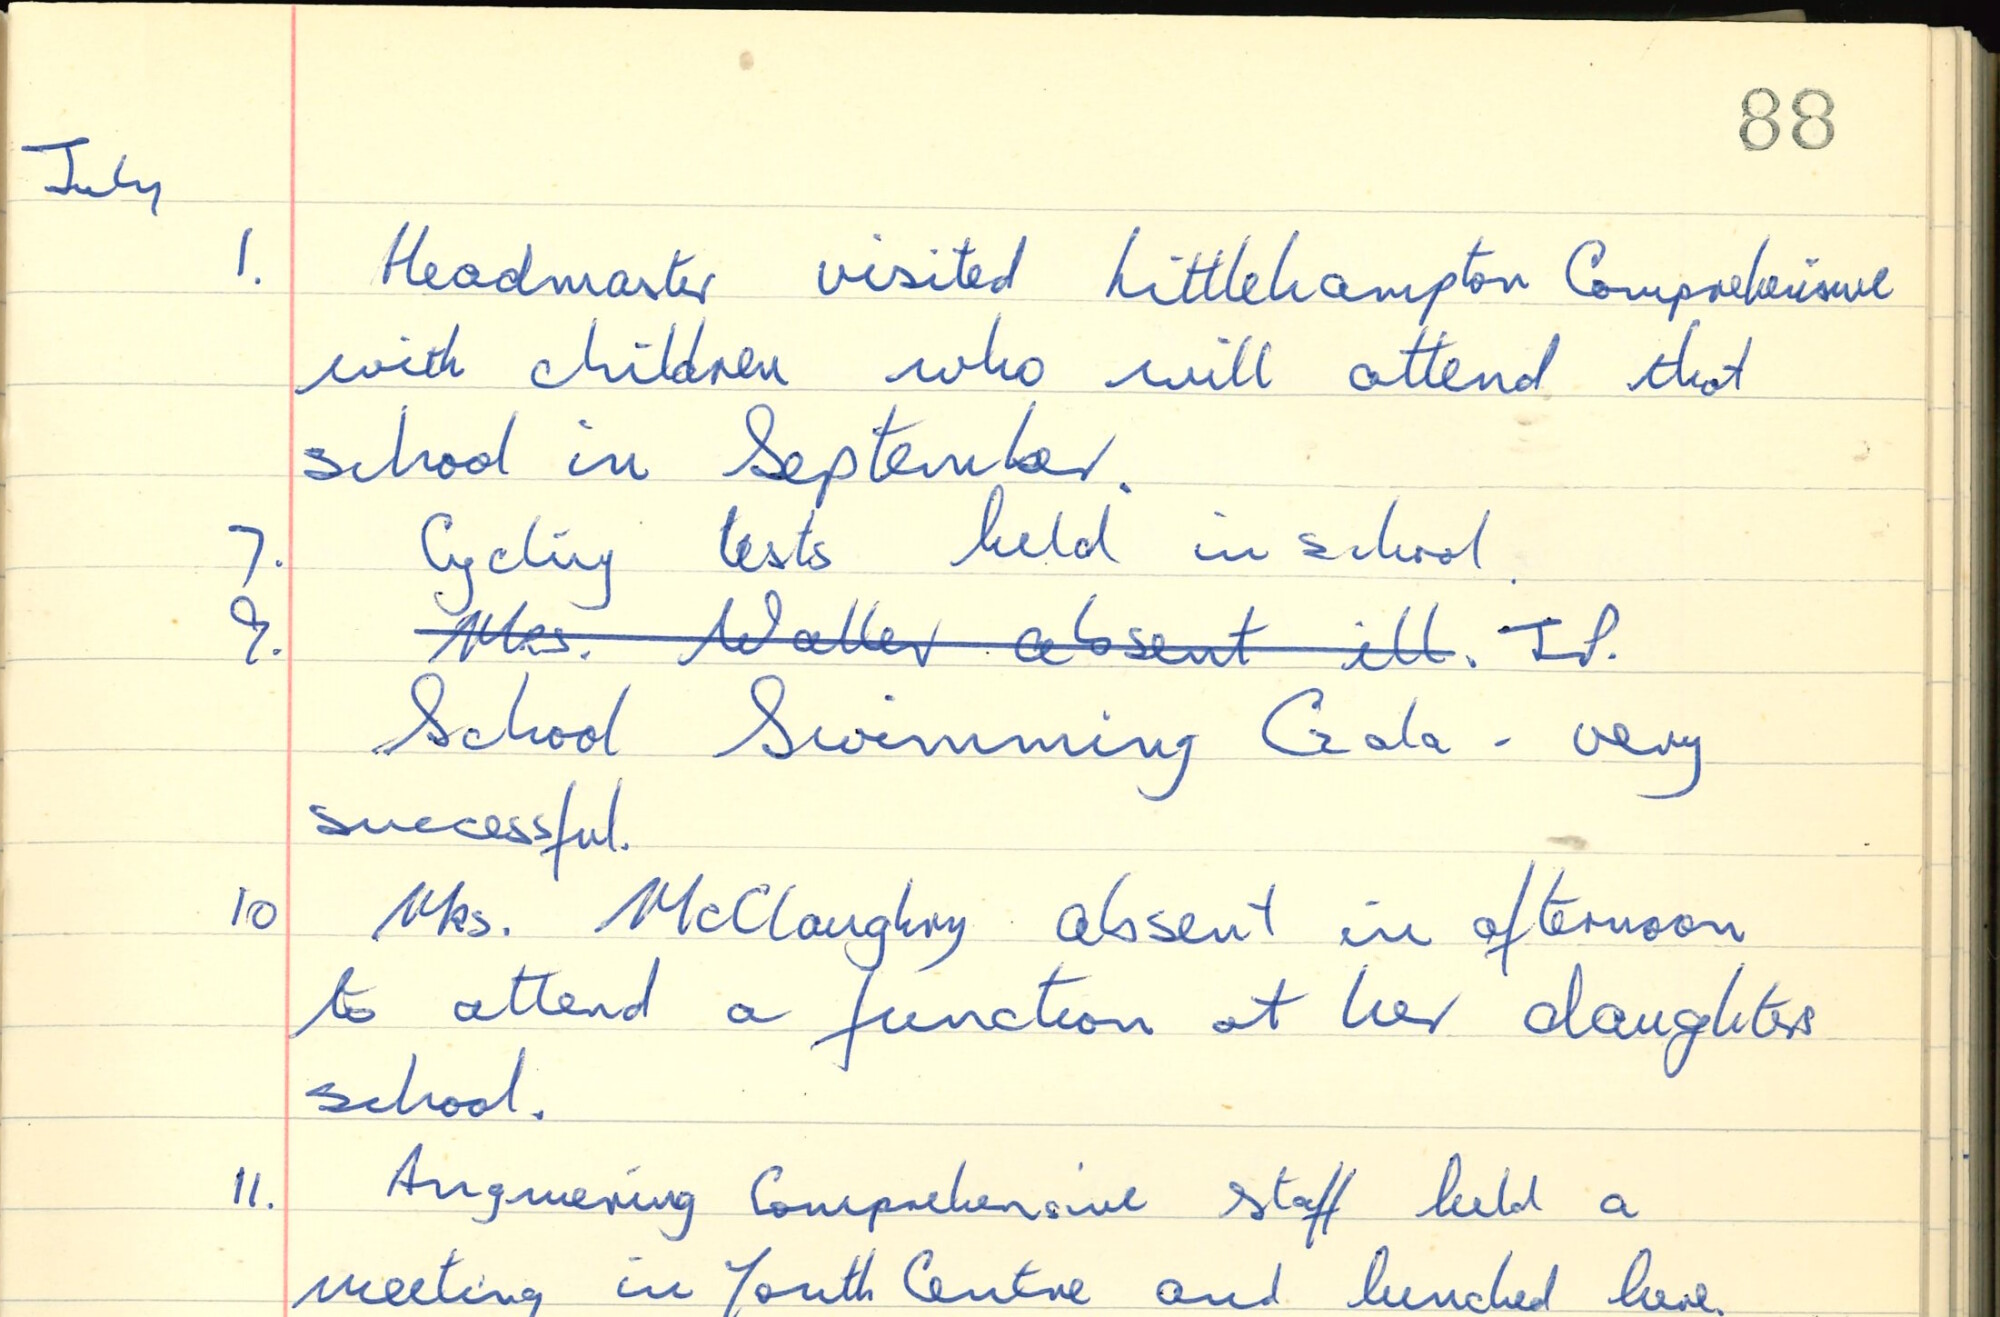 88
July
1. Headmaster visited Littlehampton Comprehensive
with children who will attend that
school in September.
7. Cycling tests held in school.
9. Mrs. Waller absent ill. I.P.
School Swimming Gala - very
successful.
10 Mrs. McClaughry absent in afternoon
to attend a function at her daughters
school.
11. Angmering Comprehensive staff held a
meeting in Youth Centre and lunched here.